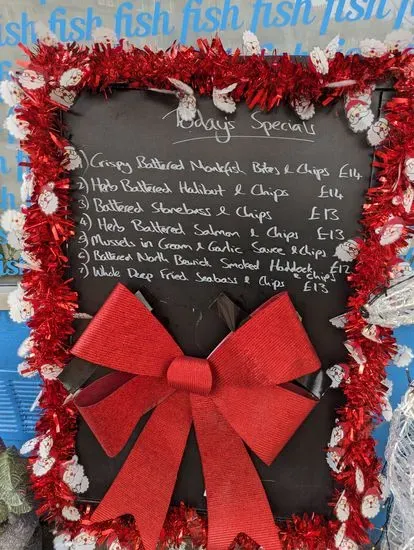 fish fish fish fish fish fish
Todays Specials
1) Crispy Battered Monkfish Bites & Chips £14
2) Herb Battered Halibut & Chips £14
3) Battered Stonebass & Chips £13
4) Herb Battered Salmon & Chips £13
5) Mussels in Cream & Garlic Sauce & Chips
6) Battered North Berwick Smoked Haddock & Chips £12
7) Whole Deep Fried Seabass & Chips £13